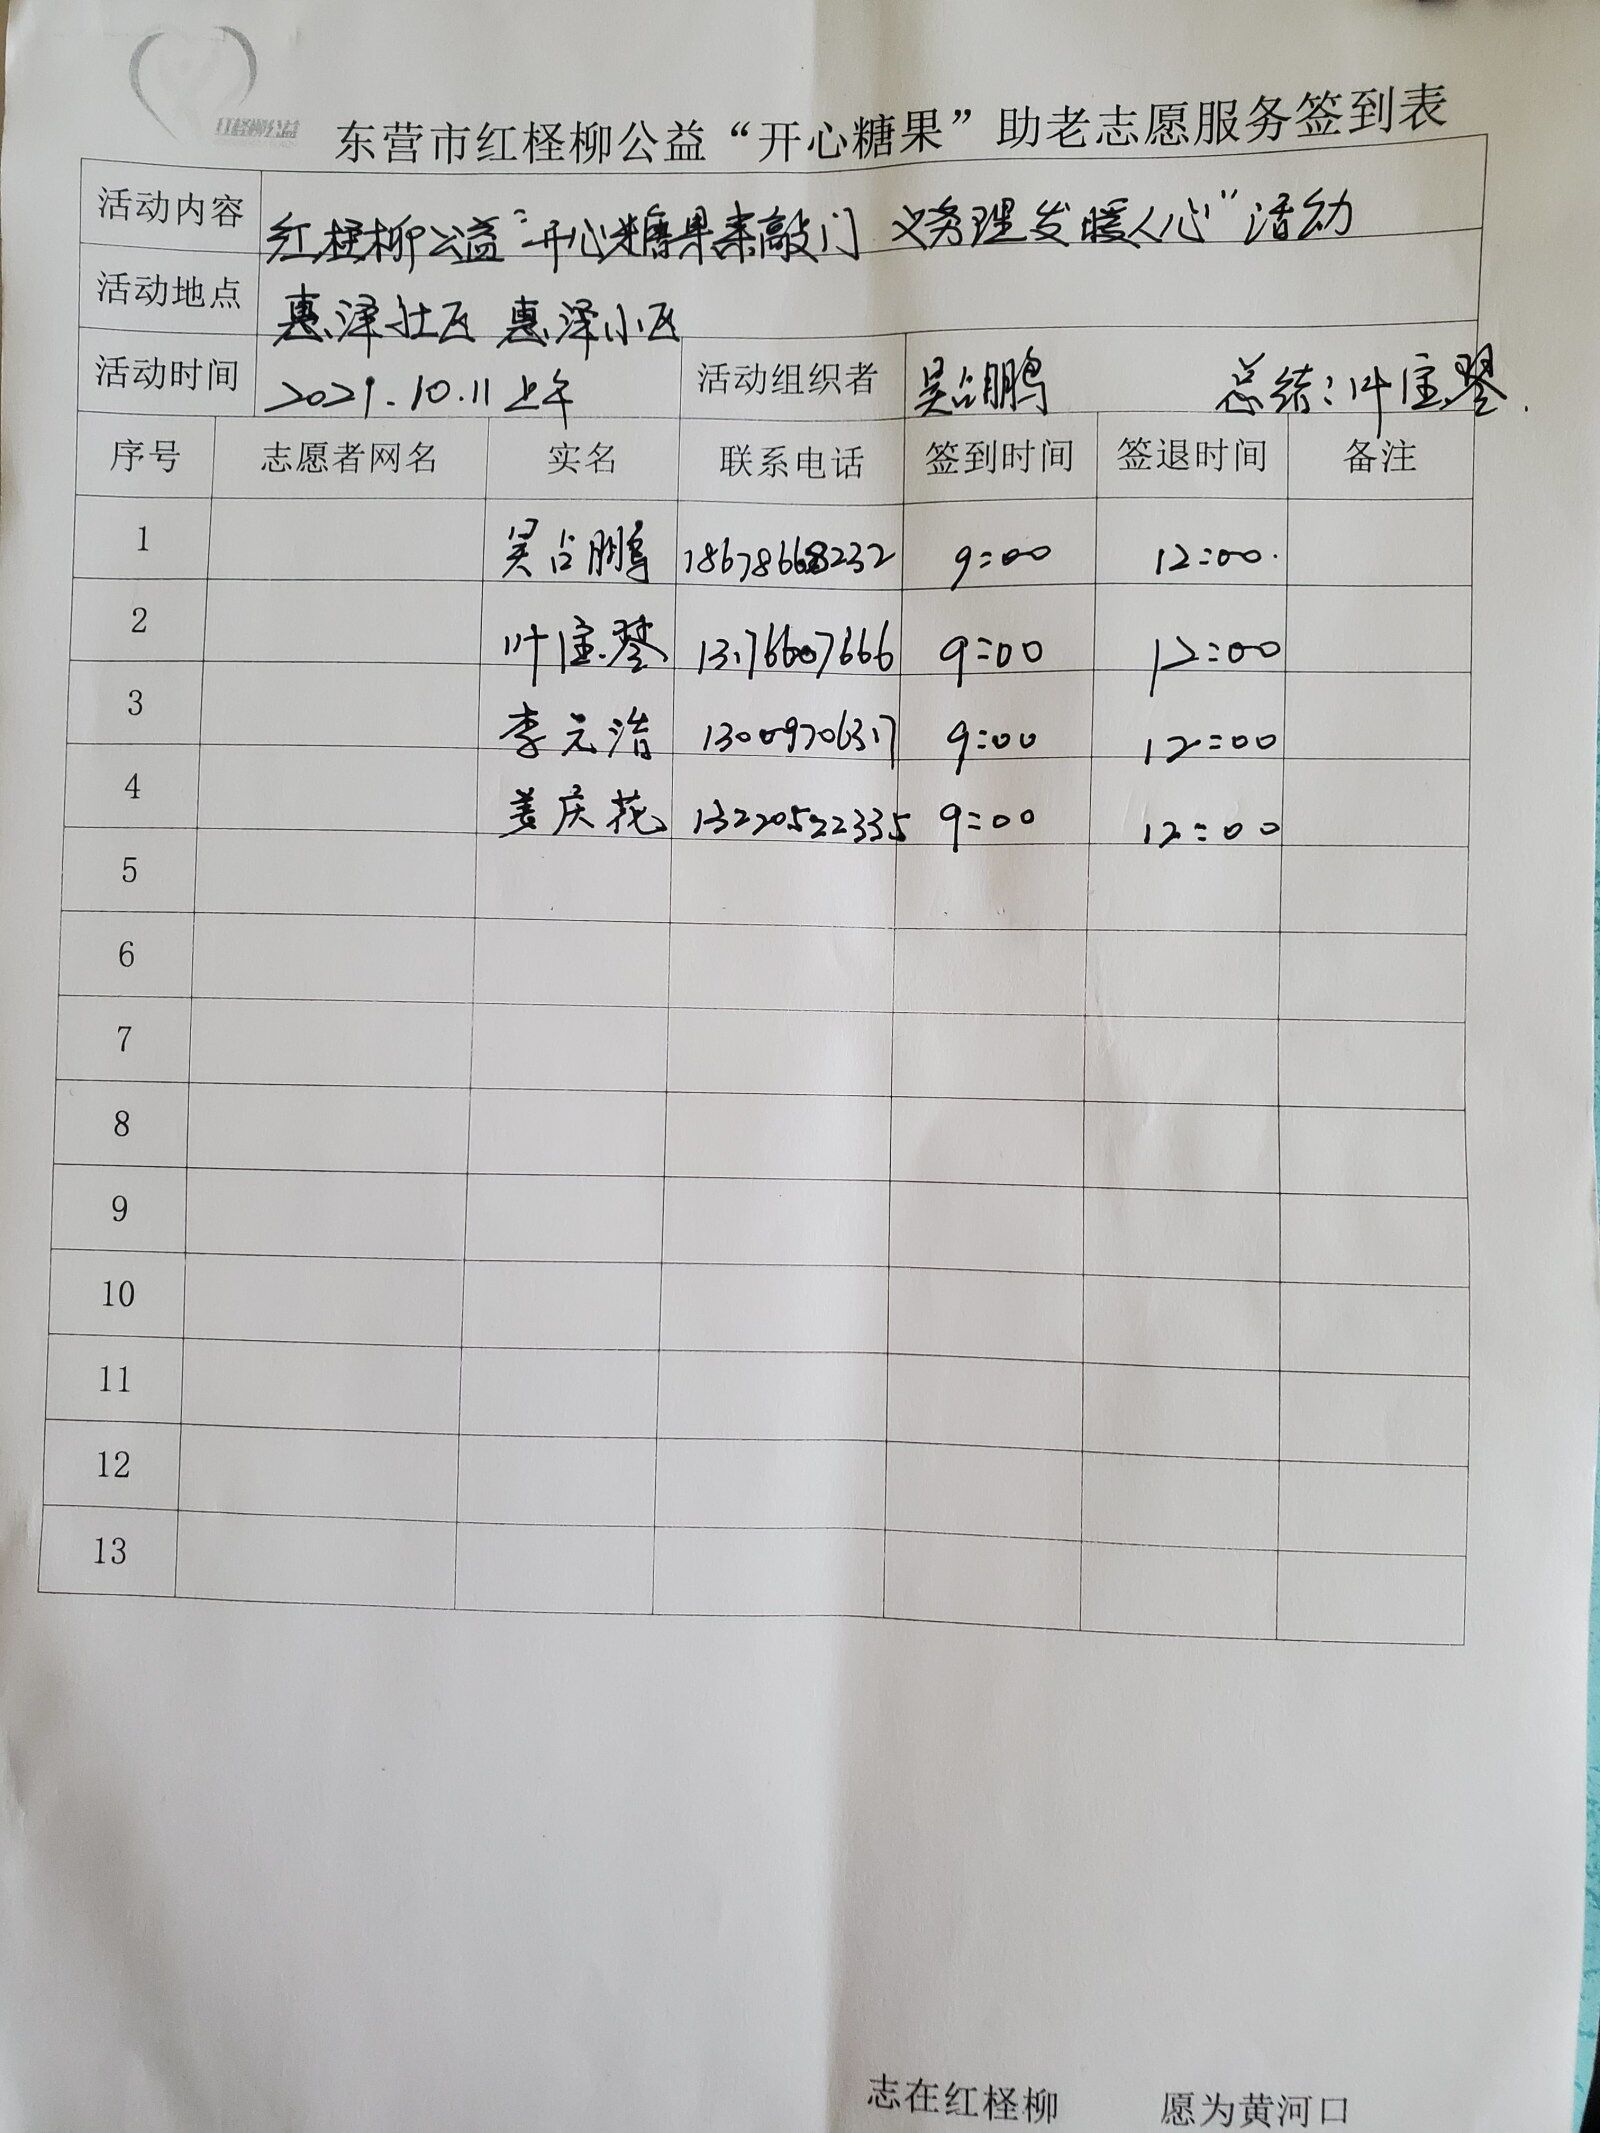 红柽柳公益
东营市红柽柳公益“开心糖果”助老志愿服务签到表
活动内容 红柽柳公益“开心糖果来敲门 义务理发暖人心”活动
活动地点 惠泽社区 惠泽小区
活动时间 2021.10.11上午 活动组织者 吴占鹏 总结：叶宝琴.
序号 志愿者网名 实名 联系电话 签到时间 签退时间 备注
1 吴占鹏 18678668232 9:00 12:00.
2 叶宝琴 13176607666 9:00 12:00
3 李元治 13009706317 9:00 12:00
4 姜庆花 13220522335 9:00 12:00
5
6
7
8
9
10
11
12
13
志在红柽柳 愿为黄河口